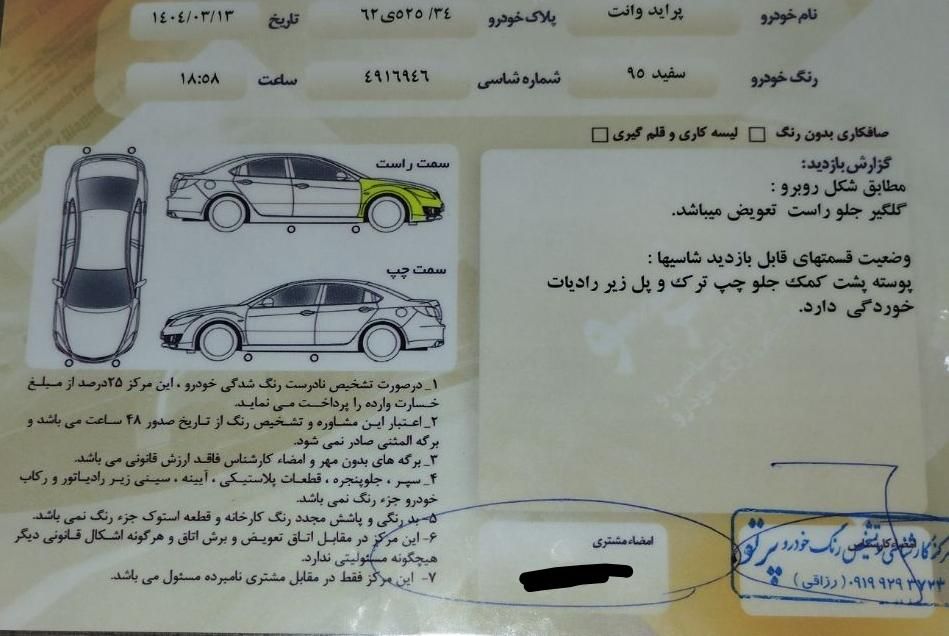 نام خودرو پراید وانت پلاک خودرو ۳۴/ ۵۲۵ی۶۲ تاریخ ۱۴۰۴/۰۳/۱۳
رنگ خودرو سفید ۹۵ شماره شاسی ٤٩١٦٩٤٦ ساعت ۱۸:۵۸
صافکاری بدون رنگ لیسه کاری و قلم گیری
گزارش بازدید:
مطابق شکل روبرو :
گلگیر جلو راست تعویض میباشد.
وضعیت قسمتهای قابل بازدید شاسیها :
پوسته پشت کمک جلو چپ ترک و پل زیر رادیات
خوردگی دارد.
سمت راست
سمت چپ
۱_درصورت تشخیص نادرست رنگ شدگی خودرو ، این مرکز ۲۵درصد از مبلغ
خسارت وارده را پرداخت می نماید.
۲_اعتبار این مشاوره و تشخیص رنگ از تاریخ صدور ۴۸ ساعت می باشد و
برگه المثنی صادر نمی شود.
۳_برگه های بدون مهر و امضاء کارشناس فاقد ارزش قانونی می باشد.
۴_سپر ، جلوپنجره ، قطعات پلاستیکی ، آیینه ، سینی زیر رادیاتور و رکاب
خودرو جزء رنگ نمی باشد.
۵-بد رنگی و پاشش مجدد رنگ کارخانه و قطعه استوک جزء رنگ نمی باشد.
۶- این مرکز در مقابل اتاق تعویض و برش اتاق و هرگونه اشکال قانونی دیگر
هیچگونه مسئولیتی ندارد.
۷- این مرکز فقط در مقابل مشتری نامبرده مسئول می باشد.
امضاء مشتری
امضاء کارشناس
تشخیص رنگ خودرو پرتو
(رزاقی)